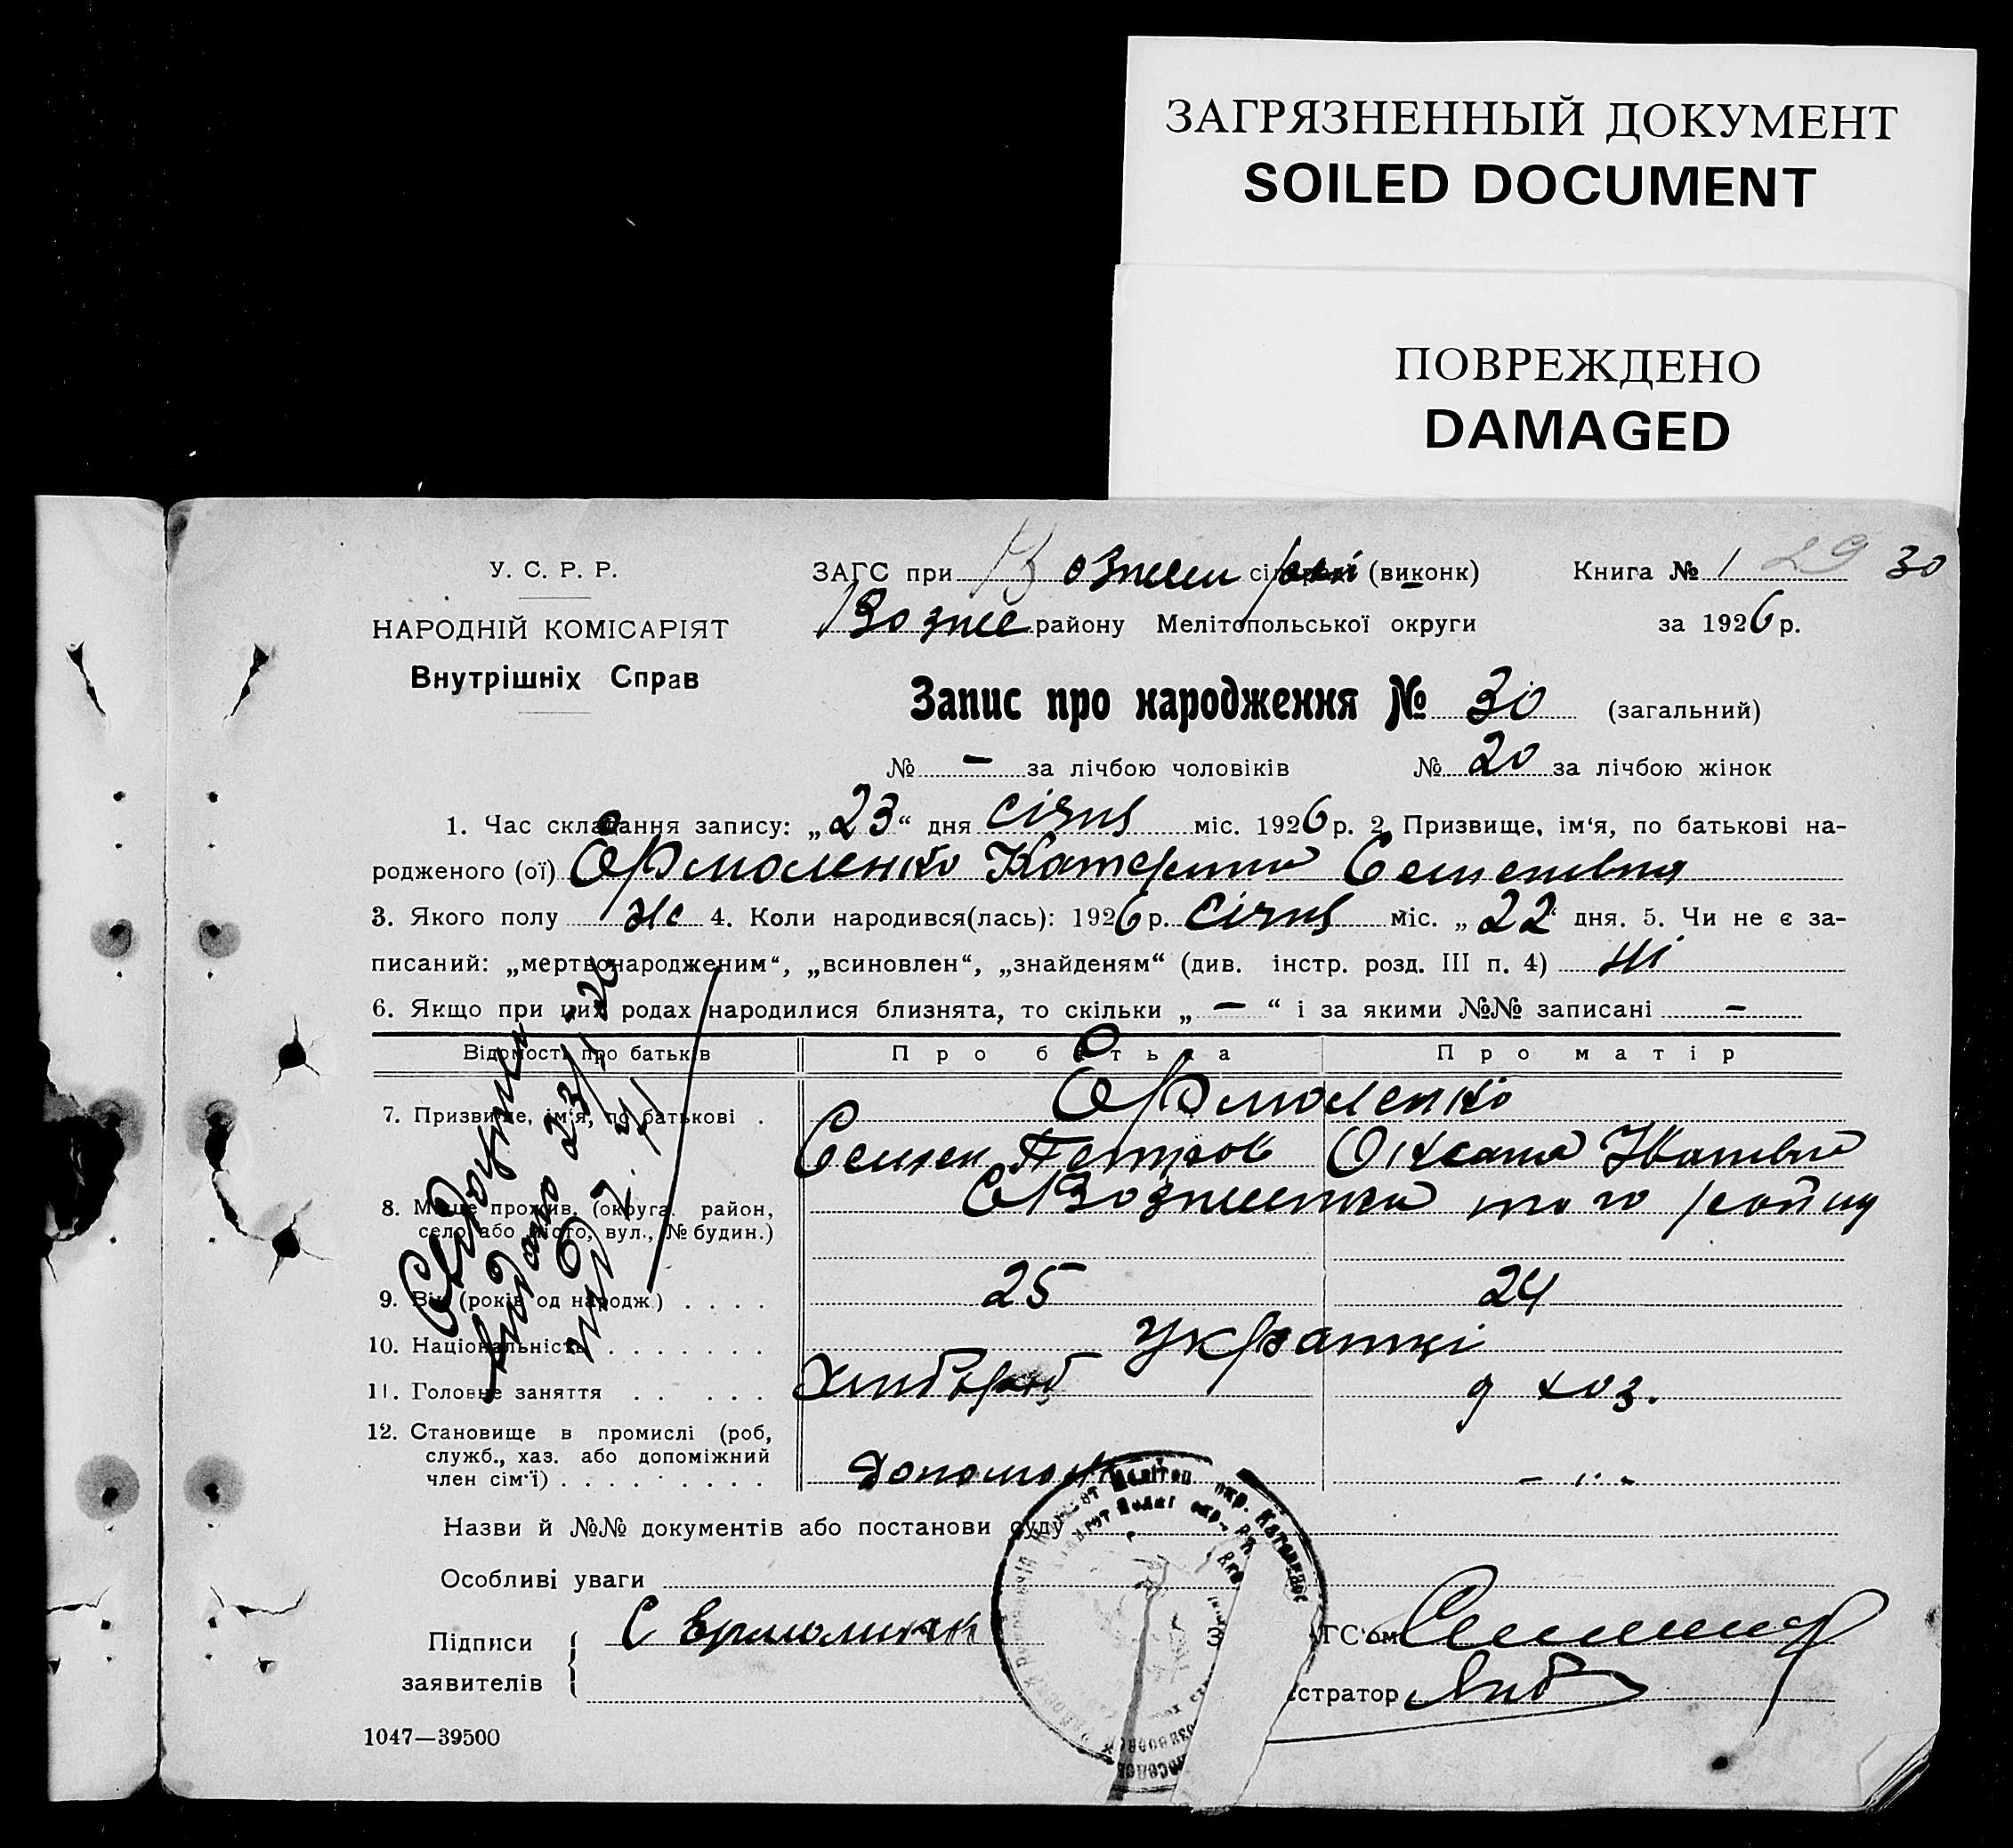 ЗАГРЯЗНЕННЫЙ ДОКУМЕНТ
SOILED DOCUMENT
ПОВРЕЖДЕНО
DAMAGED
У. С. Р. Р.
НАРОДНІЙ КОМІСАРІЯТ
Внутрішніх Справ
ЗАГС при Вознесен сіль (виконк) Книга № 1 29 30
Вознес району Мелітопольської округи за 1926 р.
Запис про народження № 30 (загальний)
№ — за лічбою чоловіків № 20 за лічбою жінок
1. Час складання запису: „23“ дня січня міс. 1926 р. 2. Призвище, ім‘я, по батькові на-
родженого (ої) Єрмоленко Катерина Семенівна
3. Якого полу жс 4. Коли народився(лась): 1926 р. січня міс. „22“ дня. 5. Чи не є за-
писаний: „мертвонародженим“, „всиновлен“, „знайденям“ (див. інстр. розд. III п. 4) ні
6. Якщо при цих родах народилися близнята, то скільки „ — “ і за якими №№ записані —
Відомості про батьків Про батька Про матір
7. Призвище, ім‘я, по батькові . Єрмоленко
Семен Петров Оксана Іванівна
8. Місце прожив. (округа. район, С Вознесенка того району
село або місто, вул., № будин.)
9. Вік (років од народж) . . . . 25 24
10. Національність . . . . . . . Українці
11. Головне заняття . . . . . Хлібороб д хоз.
12. Становище в промислі (роб,
служб., хаз. або допоміжний
член сім‘ї) . . . . . . . . . Допомож — „ —
Назви й №№ документів або постанови суду
Особливі уваги
Підписи
заявителів
С Ермоленко
ГС‘ом
стратор
1047—39500